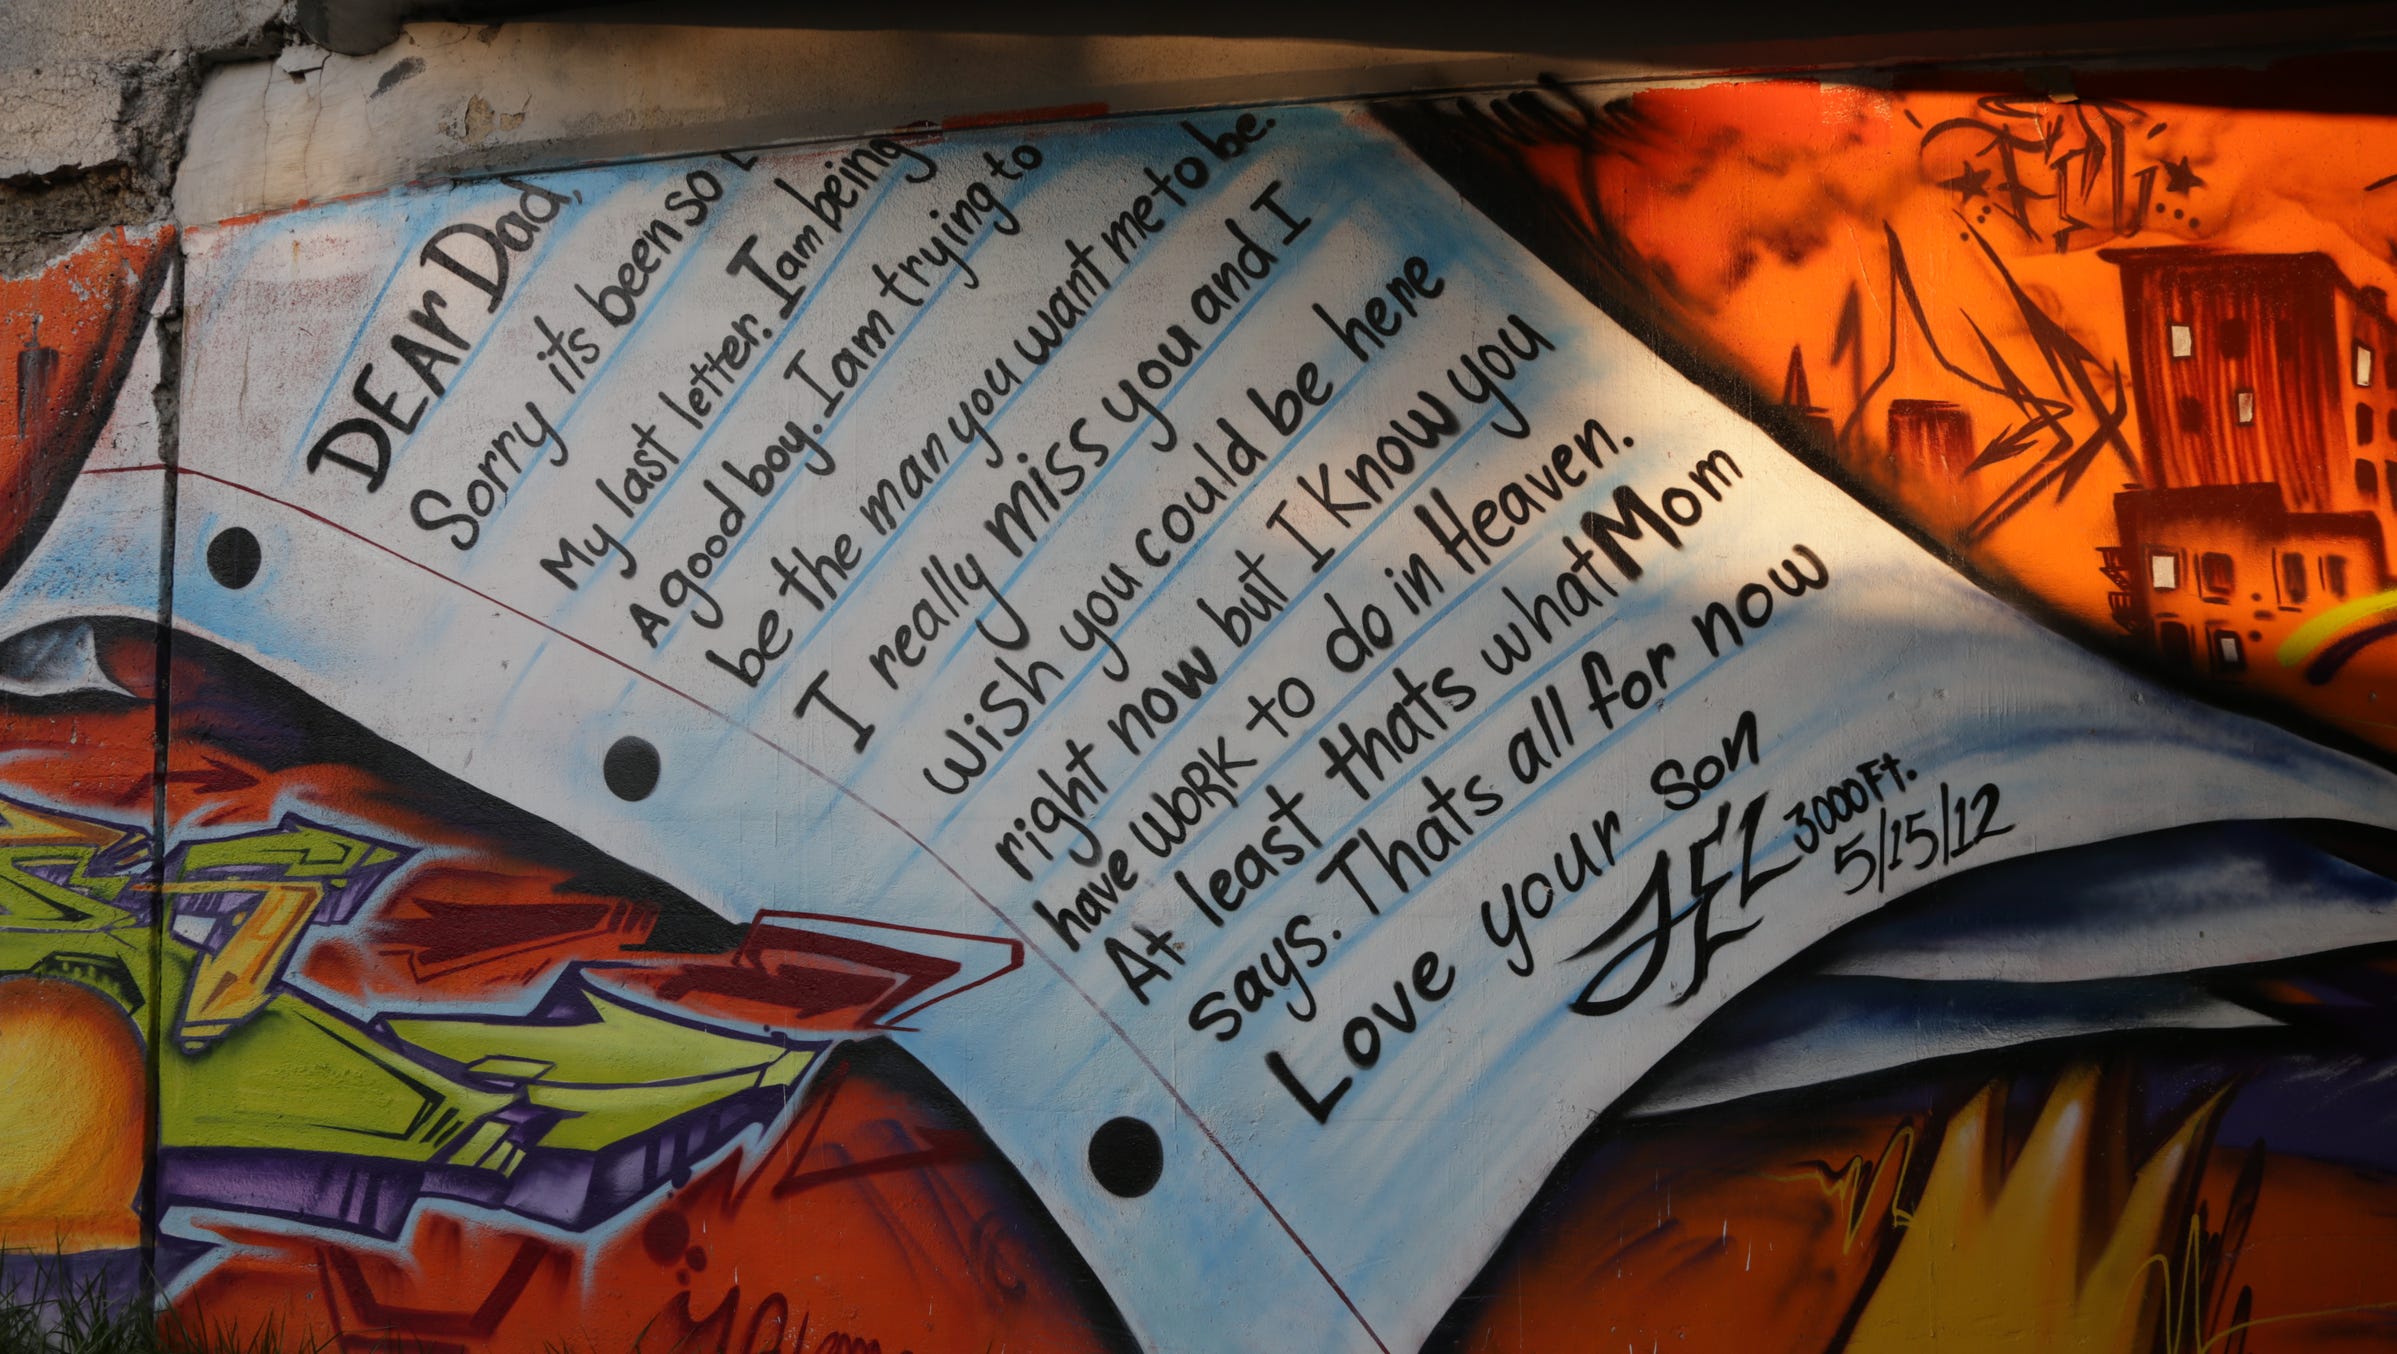 DEAr Dad,
Sorry its been so
My last letter. I am being
A good boy. I am trying to
be the man you want me to be.
I really miss you and I
wish you could be here
right now but I Know you
have WORK to do in Heaven.
At least thats what Mom
says. Thats all for now
Love your Son
JEL 3000 Ft.
5/15/12